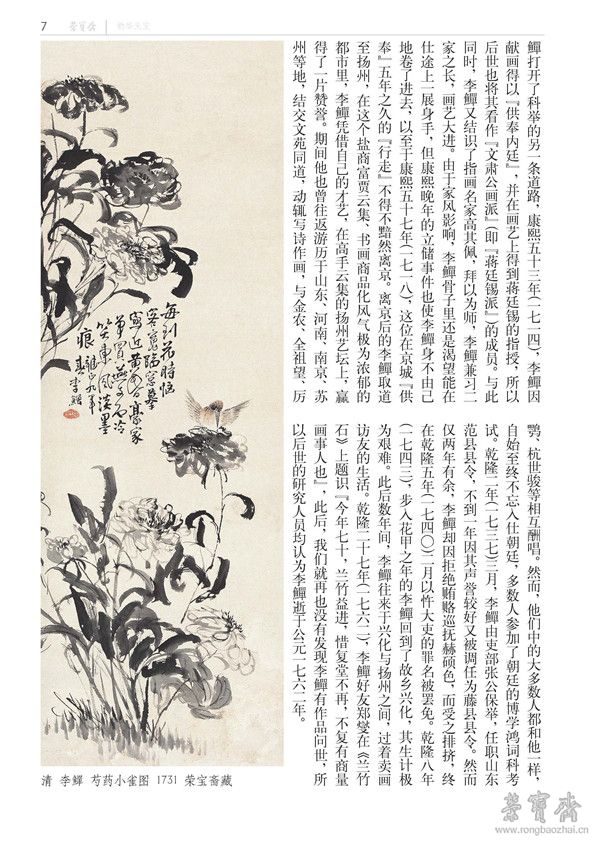 7 荣宝斋
鱓打开了科举的另一条道路，康熙五十三年（一七一四），李鱓因
献画得以『供奉内廷』，并在画艺上得到蒋廷锡的指授，所以
后世也将其看作『文肃公画派』（即『蒋廷锡派』）的成员。与此
同时，李鱓又结识了指画名家高其佩，拜以为师，李鱓兼习二
家之长，画艺大进。由于家风影响，李鱓骨子里还是渴望能在
仕途上一展身手，但康熙晚年的立储事件也使李鱓身不由己
地卷了进去，以至于康熙五十七年（一七一八），这位在京城『供
奉』五年之久的『行走』不得不黯然离京。离京后的李鱓取道
至扬州，在这个盐商富贾云集、书画商品化风气极为浓郁的
都市里，李鱓凭借自己的才艺，在高手云集的扬州艺坛上，赢
得了一片赞誉。期间他也曾往返游历于山东、河南、南京、苏
州等地，结交文苑同道，动辄写诗作画，与金农、全祖望、厉
鹗、杭世骏等相互酬唱。然而，他们中的大多数人都和他一样，
自始至终不忘入仕朝廷，多数人参加了朝廷的博学鸿词科考
试。乾隆二年（一七三七）三月，李鱓由吏部张公保举，任职山东
范县县令，不到一年因其声誉较好又被调任为藤县县令。然而
仅两年有余，李鱓却因拒绝贿赂巡抚赫硕色，而受之排挤，终
在乾隆五年（一七四〇）二月以忤大吏的罪名被罢免。乾隆八年
（一七四三），步入花甲之年的李鱓回到了故乡兴化，其生计极
为艰难。此后数年间，李鱓往来于兴化与扬州之间，过着卖画
访友的生活。乾隆二十七年（一七六二），李鱓好友郑燮在《兰竹
石》上题识『今年七十，兰竹益进，惜复堂不再，不复有商量
画事人也』，此后，我们就再也没有发现李鱓有作品问世，所
以后世的研究人员均认为李鱓逝于公元一七六二年。
每到花時惱
寫近黄昏豪家
笑東風淡墨
痕 雍正九年
李鱓
清 李鱓 芍药小雀图 1731 荣宝斋藏
榮寶齋
www.rongbaozhai.cn